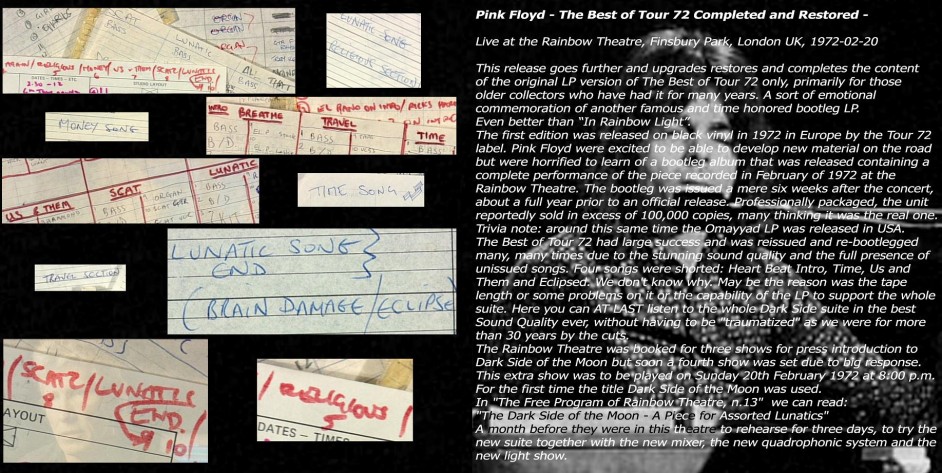 SCAT
LUNATIC
BASS
ORGAN
ORGAN
LUNATIC SONG
RELIGIOUS SECTION
DATES - TIMES - ETC
END
MONEY SONG
WHO
BREATHE
TRAVEL
TIME
BASS
B/D
BASS
B/D
BASS
US & THEM
SCAT
LUNATIC
BASS
ORGAN
BASS
B/D
TIME SONG
TRAVEL SECTION
LUNATIC SONG
END
(BRAIN DAMAGE/ECLIPSE
/SCAT2/LUNATIC
8
END
9 10
AYOUT
/RELIGIOUS/
5
DATES - TIMES
Pink Floyd - The Best of Tour 72 Completed and Restored -
Live at the Rainbow Theatre, Finsbury Park, London UK, 1972-02-20
This release goes further and upgrades restores and completes the content
of the original LP version of The Best of Tour 72 only, primarily for those
older collectors who have had it for many years. A sort of emotional
commemoration of another famous and time honored bootleg LP.
Even better than "In Rainbow Light".
The first edition was released on black vinyl in 1972 in Europe by the Tour 72
label. Pink Floyd were excited to be able to develop new material on the road
but were horrified to learn of a bootleg album that was released containing a
complete performance of the piece recorded in February of 1972 at the
Rainbow Theatre. The bootleg was issued a mere six weeks after the concert,
about a full year prior to an official release. Professionally packaged, the unit
reportedly sold in excess of 100,000 copies, many thinking it was the real one.
Trivia note: around this same time the Omayyad LP was released in USA.
The Best of Tour 72 had large success and was reissued and re-bootlegged
many, many times due to the stunning sound quality and the full presence of
unissued songs. Four songs were shorted: Heart Beat Intro, Time, Us and
Them and Eclipsed. We don't know why. May be the reason was the tape
length or some problems on it or the capability of the LP to support the whole
suite. Here you can AT LAST listen to the whole Dark Side suite in the best
Sound Quality ever, without having to be "traumatized" as we were for more
than 30 years by the cuts.
The Rainbow Theatre was booked for three shows for press introduction to
Dark Side of the Moon but soon a fourth show was set due to big response.
This extra show was to be played on Sunday 20th February 1972 at 8:00 p.m.
For the first time the title Dark Side of the Moon was used.
In "The Free Program of Rainbow Theatre, n.13" we can read:
"The Dark Side of the Moon - A Piece for Assorted Lunatics"
A month before they were in this theatre to rehearse for three days, to try the
new suite together with the new mixer, the new quadrophonic system and the
new light show.